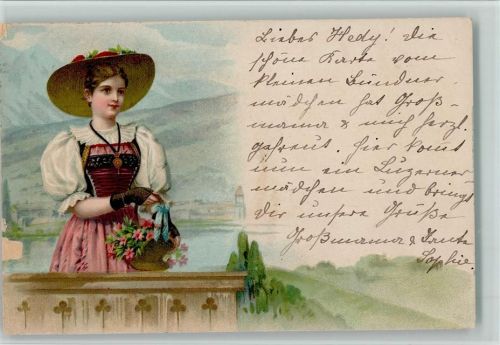 Liebes Hedy! Die
schöne Karte vom
kleinen Bündner-
mädchen hat Groß-
mama & mich herzl.
gefreut. Hier komt
nun ein Luzerner
mädchen und bringt
dir unsere Grüße
Großmama & Tante
Sophie.